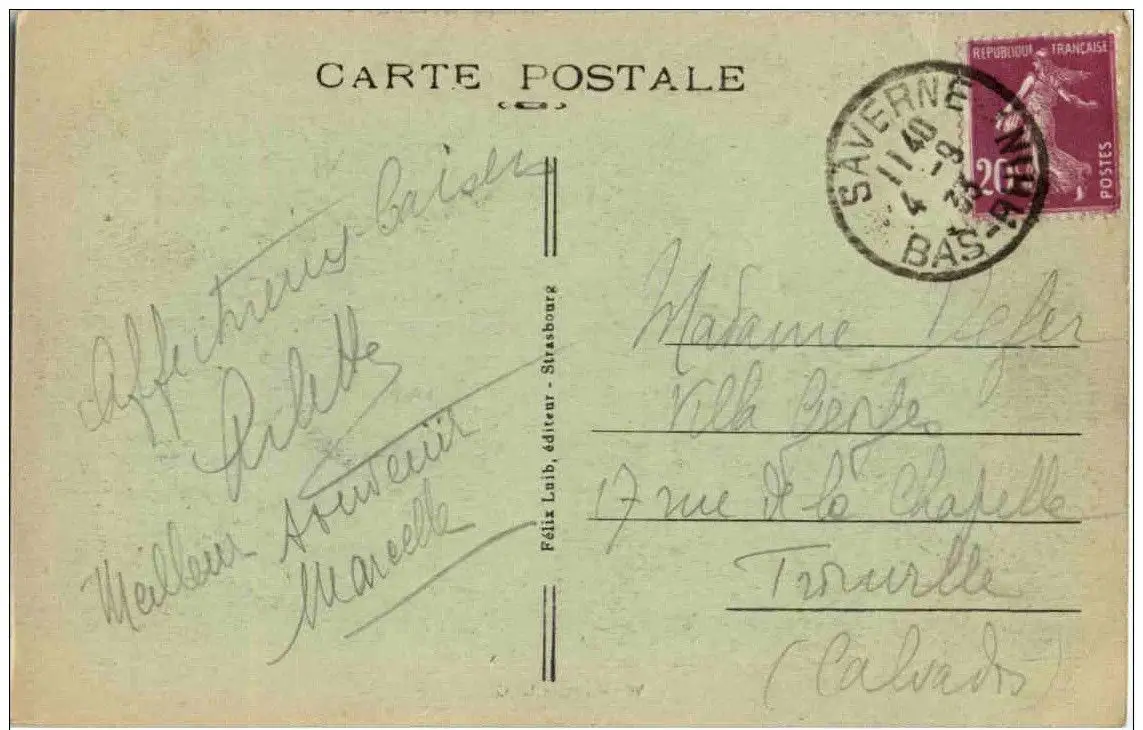 CARTE POSTALE
REPUBLIQUE FRANÇAISE
20
POSTES
SAVERNE
11 40
4 -9
33
BAS-RHIN
Affectueux baisers
Meilleur souvenir
Marcelle
Félix Luib, éditeur - Strasbourg
Madame
Villa
17 rue de la Chapelle
Trouville
(Calvados)